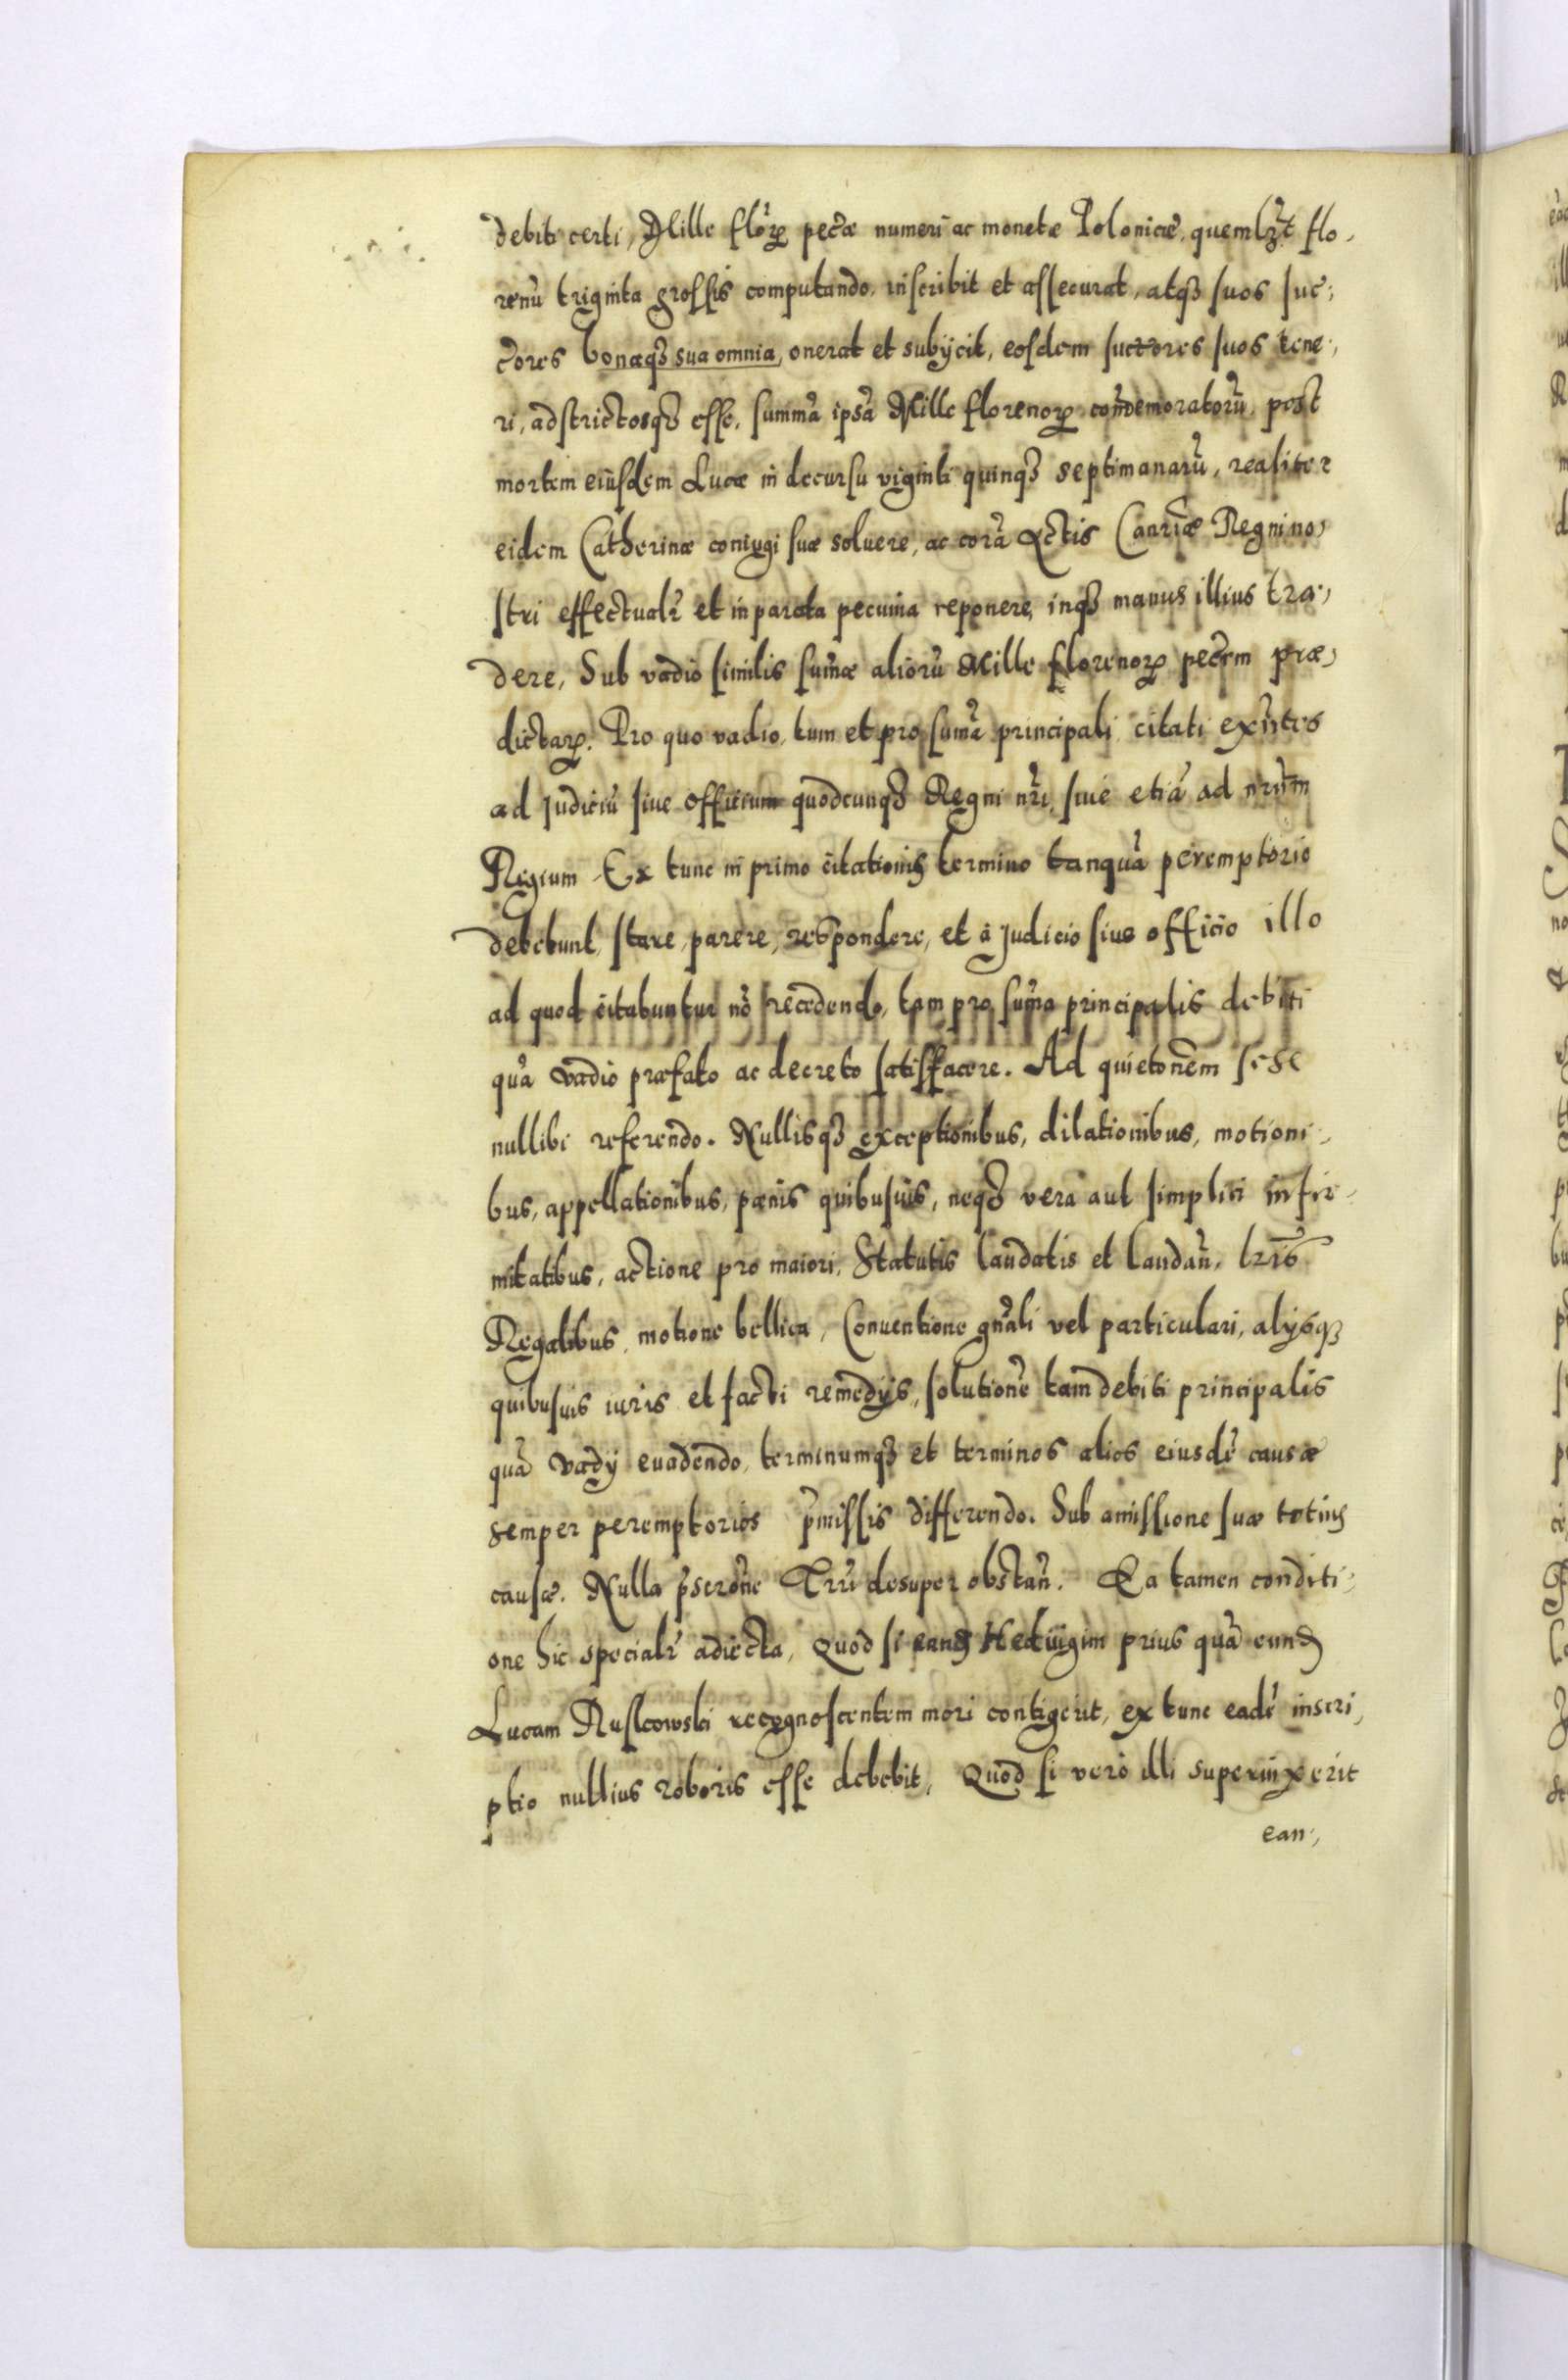 debiti certi, Mille flor̃ꝝ pecc̃æ numeri ac monetæ Polonicæ, quemlꝫt flo,
renũ triginta grossis computando, inscribit et assecurat, atqꝫ suos suc,
c̃ores bonaqꝫ sua omnia, onerat et subÿcit, eosdem succ̃ores suos tene,
ri, adstrictosqꝫ esse, summã ipsã Mille florenoꝝ com̃emoratorũ, post
mortem eiusdem Lucæ in decursu viginti quinqꝫ septimanarũ, realiter
eidem Catherinæ coniugi suæ soluere, ac corã Actis Canr̃iæ Regni no,
stri effectualr̃ et in parata pecunia reponere, inqꝫ manus illius tra,
dere, Sub vadio similis sum̃æ aliorũ Mille florenoꝝ pecc̃m præ,
dictaꝝ. Pro quo vadio, tum et pro sum̃a principali citati exñtes
ad Judiciũ siue officium quodcunqꝫ Regni nr̃i, siue etiã ad nr̃um
Regium Ex tunc in primo citationis termino tanquã peremptorio
debebunt, stare, parere, respondere, et à Judicio siue officio illo
ad quod citabuntur nõ recedendo, tam pro sum̃a principalis debiti
quã vadio præfato ac decreto satisfacere. Ad quietoñem sese
nullibi referendo. Nullisqꝫ exceptionibus, dilationibus, motioni,
bus, appellationibus, pænis quibusuis, neqꝫ vera aut simplici infir,
mitatibus, actione pro maiori, Statutis laudatis et laudañ, lr̃is
Regalibus, motione bellica, Conuentione gñali vel particulari, alÿsqꝫ
quibusuis iuris et facti remedÿs, solutionẽ tam debiti principalis
quã vadÿ euadendo, terminumqꝫ et terminos alios eiusdẽ causæ
semper peremptorios p̃missis differendo. Sub amissione suæ totius
causæ. Nulla p̃scroñe Trr̃i desuper obstañ. Ea tamen conditi,
one hic specialr̃ adiecta, Quod si eand Heduigim prius quã eund
Lucam Ruskowski recognoscentem mori contigerit, ex tunc eadẽ inscri,
ptio nullius roboris esse debebit, Quod si verò illi superuixerit
ean,